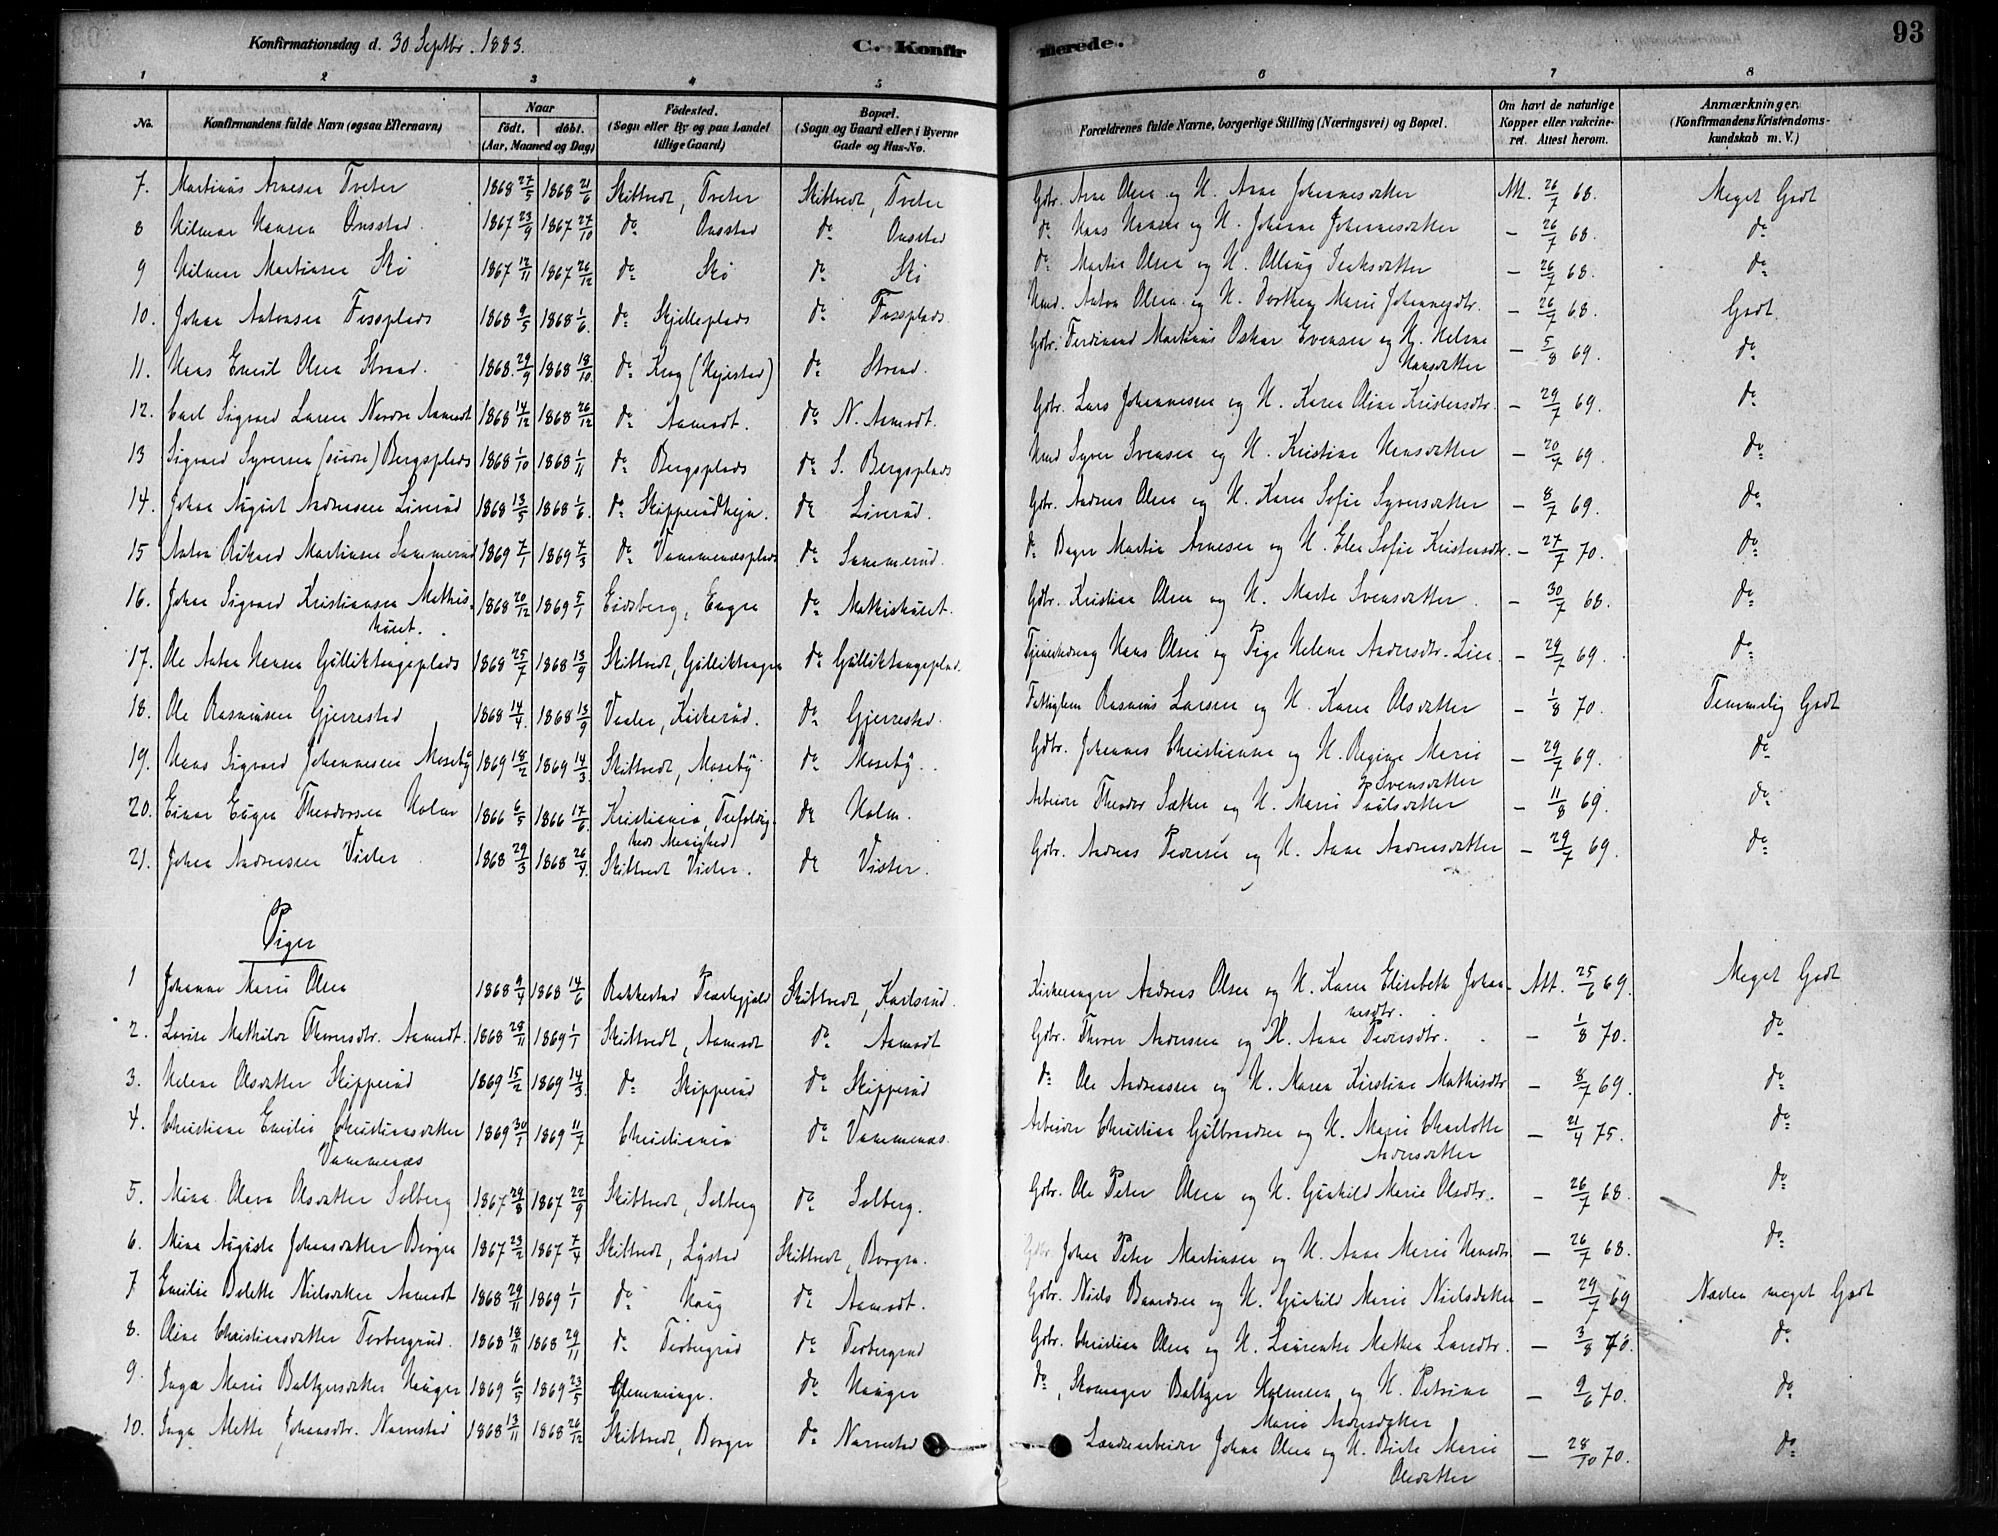 Konfirmationsdag d. 30 Septbr. 1883. C. Konfirmerede. 93
1 2 3 4 5 6 7 8
No. Konfirmandens fulde Navn (ogsaa Efternavn) Naar født. døbt. (Aar, Maaned og Dag) Fødested. (Sogn eller By og paa Landet tillige Gaard) Bopæl. (Sogn og Gaard eller i Byerne Gade og Hus-No. Forældrenes fulde Navne, borgerlige Stilling (Næringsvei) og Bopæl. Om havt de naturlige Kopper eller vaccineret. Attest herom. Anmærkninger. (Konfirmandens Kristendomskundskab m. V.)
7. Martinus Arnesen Tveter 1868 27/5 1868 21/6 Skiptvedt, Tveter Skiptvedt, Tveter Gdbr. Arne Olsen og H. Anne Johannesdatter Att. 26/7 68. Meget Godt
8 Hilmar Hansen Onsstad. 1867 23/9 1867 27/10 do Onsstad do Onsstad do Hans Hansen og H. Johanne Johannesdatter – 26/7 68. do
9 Hilmar Martinsen Skö 1867 12/11 1867 26/12 do Skö do Skö do Martin Olsen og H. Olloug Isaksdatter – 26/7 68. do
10. Johan Antonsen Fossplads 1868 9/5 1868 1/6 do Skjelleplads do Fossplads. Hmd. Anton Olsen og H. Dorthea Marie Johannesdtr. – 26/7 68. Godt.
11. Hans Emil Olsen Strand. 1868. 29/9 1868 18/10 do Krog (Hejestad) do Strand. Gdbr. Ferdinand Martinus Oskar Evensen og H. Helene Hansdatter – 5/8 69. do
12. Carl Sigvard Larsen Nordre Aamodt 1868 14/12 1868 26/12 do Aamodt. do N. Aamodt. Gdbr. Lars Johannesen og H. Karen Oline Kristensdtr. – 29/7 69. do
13 Sigvard Syversen (søndre) Bergsplads 1868 1/10 1868 1/11 do Bergsplads do S. Bergsplads Hmd Syver Svensen og H. Kristine Hansdatter – 20/7 69. do
14. Johan August Andersen Lierud 1868 13/5 1868 1/6. do Skipperudheja. do Lierud. Gdbr. Anders Olsen og H. Karen Sofie Syversdatter – 8/7 69. do
15 Anton Rikard Martinsen Sammerud 1869 7/1 1869 7/3 do Vammenæsplads do Sammerud. do Bager Martin Arnesen og H. Elen Sofie Kristensdtr. – 27/7 70. do
16. Johan Sigvard Kristiansen Mathishuset. 1868 20/12 1869 5/1 Eidsberg, Engen do Mathishuset. Gdbr. Kristian Olsen og H. Marte Svensdatter. – 30/7 68. do
17. Ole Anton Hansen Gulliktangeplads 1868 25/7 1868 13/9 Skiptvedt, Gulliktangen do Gulliktangeplad. Tjenestedreng Hans Olsen og Pige Helene Andersdtr. Lien – 29/7 69. do
18. Ole Rasmussen Gjerrestad 1868 14/4. 1868 13/9 Vaaler, Kirkerud. do Gjerrestad. Fattiglem Rasmus Larsen og H. Karen Olsdatter – 1/8 70. Temmelig Godt
19. Hans Sigvard Johannesen Moseby 1869 18/2 1869 14/3 Skiptvedt, Moseby do Moseby. Gdbr. Johannes Christiansen og H. Regine Marie Svensdatter – 29/7 69. do
20. Einar Eugen Theodorsen Holm 1866 6/5 1866 17/6. Kristiania, Trefoldigheds Menighed do Holm. Arbeider Theodor Sæther og H. Marie Paulsdatter – 11/8 69. do
21. Johan Andreassen Vister 1868 29/3 1868 26/4. Skiptvedt Vister. do Vister. Gdbr. Andreas Pedersen og H. Anne Andreasdatter – 29/7 69. do
Piger
1 Johanne Marie Olsen 1868 9/4 1868 14/6 Rakkestad Præstegjeld Skiptvedt, Karlsrud. Kirkesanger Andreas Olsen og H. Karen Elisabeth Johannesdtr. Att. 25/6 69. Meget Godt
2. Lovise Mathilde Thoresdtr. Aamodt. 1868 28/11 1869 1/1 Skiptvedt, Aamodt do Aamodt Gdbr. Thorer Andersen og H. Anne Pedersdtr. – 1/8 70. do
3. Helene Olsdatter Skipperud 1869 15/2 1869 14/3 do Skipperud do Skipperud do Ole Andreasen og H. Maren Kirstine Mathisdtr – 8/7 69. do
4. Christiane Emilie Christiansdatter Vammenæs 1869 30/1 1869 11/7 Christiania do Vammenæs. Arbeider Christian Gulbrandsen og H. Marie Charlotte Andersdatter – 21/4 75. do
5. Mina Olava Olsdatter Solberg 1867 29/8 1867 22/9 Skiptvedt, Solberg do Solberg. Gdbr. Ole Peter Olsen og H. Gunhild Marie Olsdtr. – 26/7 68. do
6. Mina Auguste Johansdatter Borgen 1867 23/2 1867 7/4 Skiptvedt, Lystad Skiptvedt, Borgen. Gdbr. Johan Peter Martinsen og H. Anne Marie Hansdtr – 26/7 68. do
7 Emilie Bolette Nielsdatter Aamodt 1868 29/11 1869 1/1 do Haug do Aamodt. Gdbr. Niels Baardsen og H. Gunhild Marie Nielsdatter – 29/7 69 Næsten meget Godt
8. Oline Christiansdatter Torbergrud. 1868 18/11 1868 29/11 do Torbergrud do Torbergrud Gdbr. Christian Olsen og H. Laurentse Mathea Larsdtr. – 3/8 70. do
9. Inga Marie Baltzersdatter Hauger 1869 6/5 1869 23/5 Glemminge. do Hauger do, Skomager Baltzer Holmsen og H. Petrine Marie Andersdatter – 9/6 70. do
10. Inga Mette Johansdtr. Narvestad 1868 13/11 1868 26/12 Skiptvedt, Borgen do Narvestad Landarbeider Johan Olsen og H. Birte Marie Olesdatter – 28/10 70. do